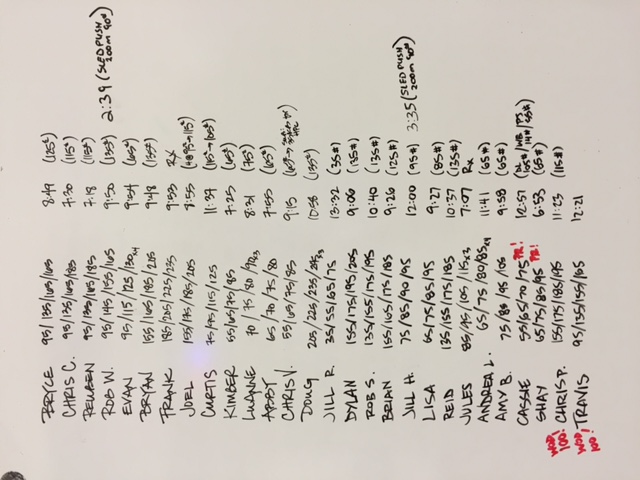 BRYCE 95/135/165/165 8:47 (125#)
CHRIS C. 95/135/165/185 7:30 (115#)
REUBEN 95/135/165/185 7:18 (115#) 2:39 (SLED PUSH 200m 90#)
ROB W. 95/145/155/165 9:50 (135#)
EVAN 95/115/125/130x4 9:54 (65#)
BRYAN 155/165/185/205 9:48 (155#)
FRANK 185/205/225/235 9:53 RX
JOEL 155/175/185/205 8:55
CURTIS 75/95/115/125 11:39
KIMBER 55/65/75/85 7:25 (65#)
LUANNE 70/75/80/90x3 8:31 (75#)
ABBY 65/70/75/80 7:55 (65#)
CHRIS V. 55/65/75/85 9:15
DOUG 205/225/235/245x3 10:58 (155#)
JILL R. 35/55/65/75 13:32 (35#)
DYLAN 155/175/195/205 9:06 (135#)
ROB S. 135/155/175/195 10:40 (135#)
BRIAN 155/165/175/185 9:26 (125#)
JILL H. 75/85/90/95 12:00 (95#) 3:35 (SLED PUSH 200m 90#)
LISA 65/75/85/95 9:27 (85#)
REID 135/155/175/185 10:37 (135#)
JULES 85/95/105/115x3 7:07 RX
ANDREA L. 65/75/80/85x4 11:41 (65#)
AMY B. 75/85/95/105 9:58 (65#)
CASSIE 55/65/70/75 PR! 12:57
SHAY 65/75/85/95 PR! 6:53 (65#)
WOD 100! CHRIS P. 155/175/185/195 11:23 (115#)
WOD 100! TRAVIS 95/135/155/165 12:21